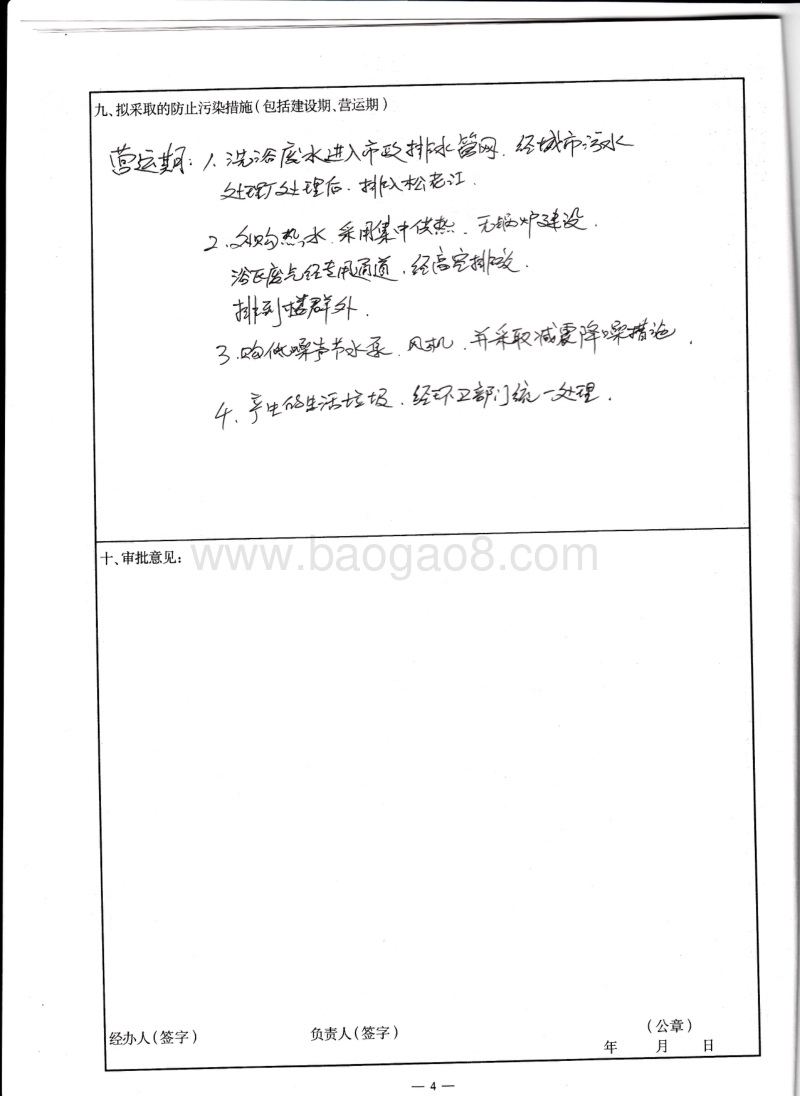 九、拟采取的防止污染措施(包括建设期、营运期)
营运期:1、洗浴废水进入市政排水管网、经城市污水
处理厂处理后、排入松花江.
2、外购热水、采用集中供热、无锅炉建设.
浴区废气经专用通道、经高空排放.
排到楼群外.
3、购低噪声节水泵、风机、并采取减震降噪措施.
4、产生的生活垃圾、经环卫部门统一处理.
十、审批意见:
www.baogao8.com
经办人(签字) 负责人(签字) (公章)
年 月 日
— 4 —